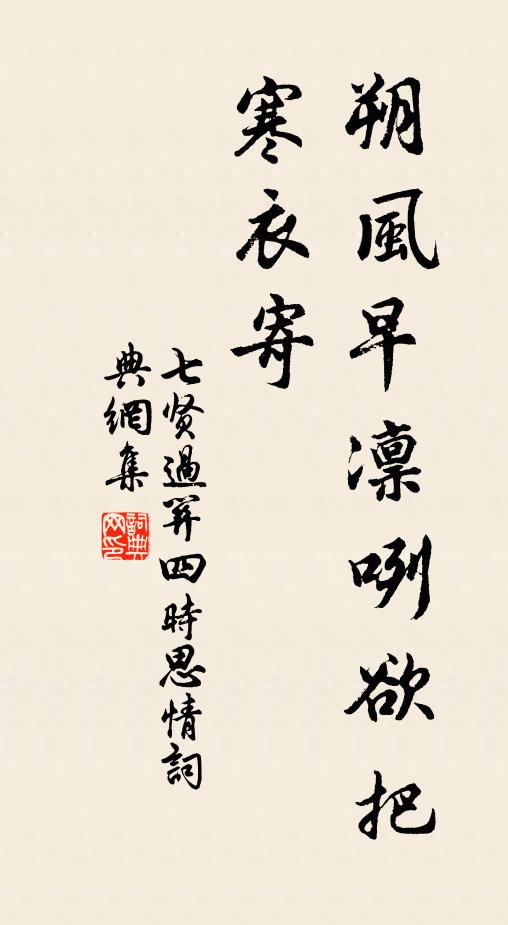 朔風早凛咧欲把
寒衣寄
七贤過関四時思情詞
典網集
詞典
网印